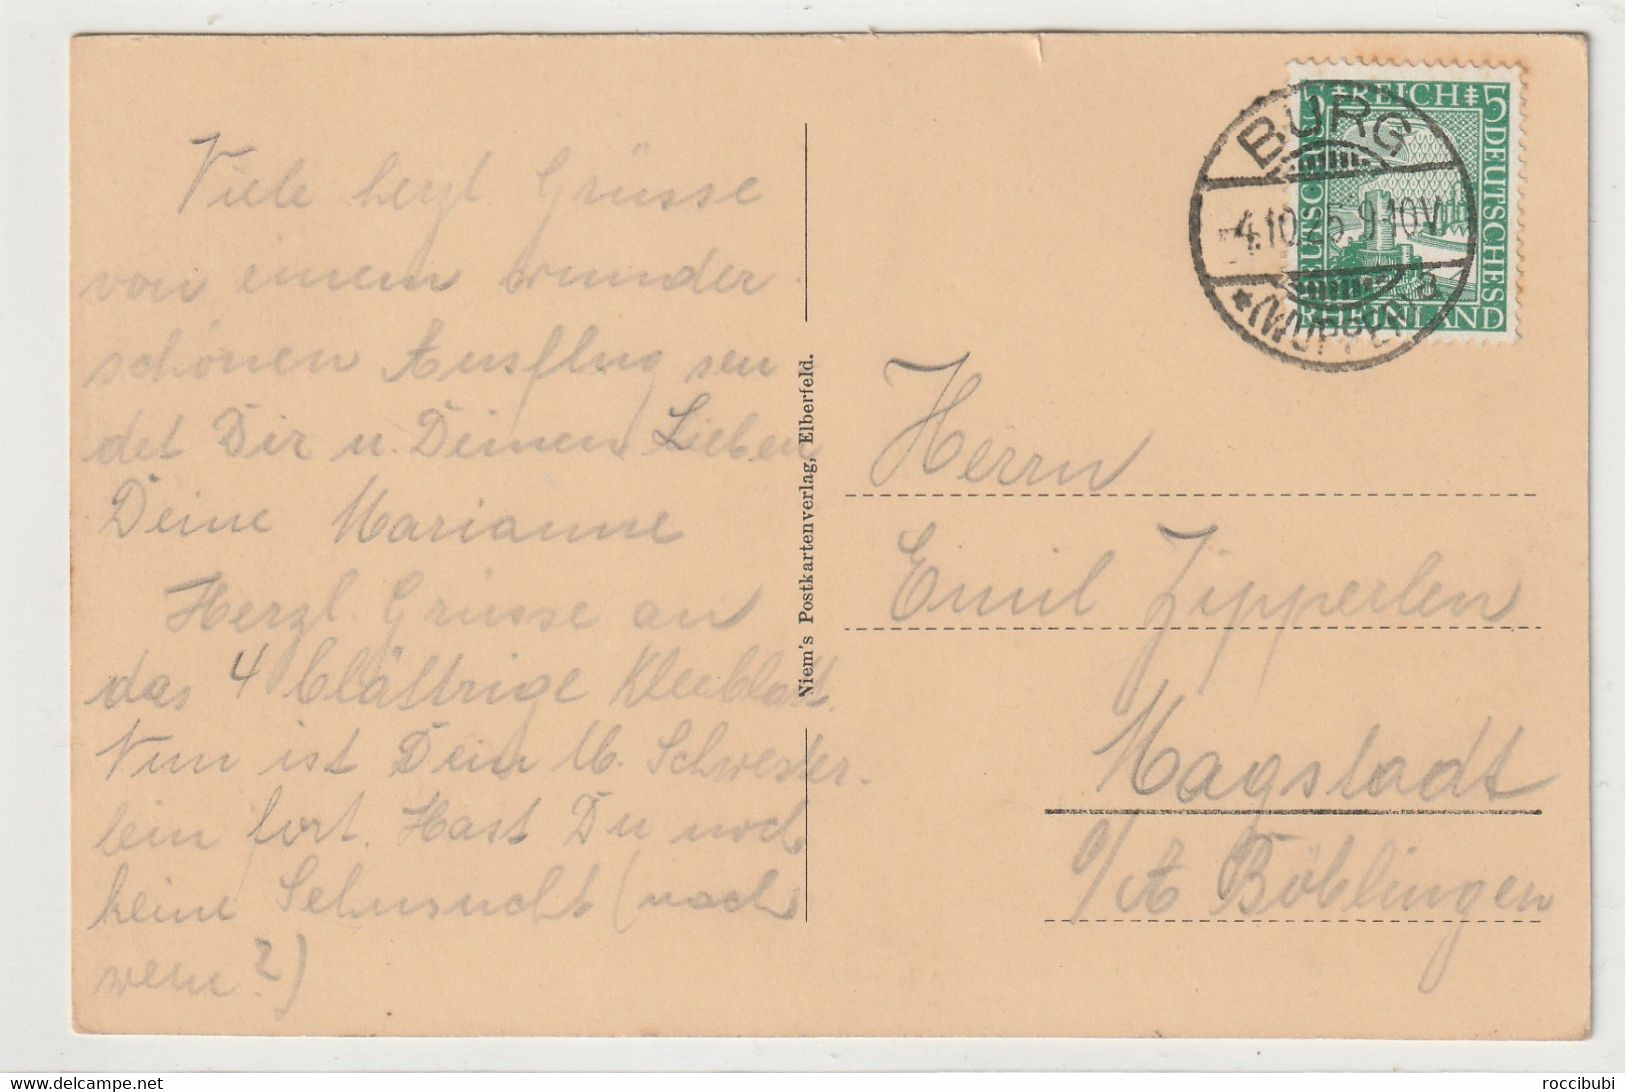 Viele herzl. Grüsse
von einem wunder
schönen Ausflug sen
det Dir u. Deinen Lieben
Deine Marianne
Herzl. Grüsse an
das 4 blättrige Kleeblatt.
Nun ist Dein M. Schwester-
lein fort. Hast Du noch
keine Sehnsucht (nach
wem?)
Niem's Postkartenverlag, Elberfeld.
5 REICH 5
DEUTSCHES
DEUTSCHES
RHEINLAND
BURG
4.10.25.9-10V.
* (WUPPER) a
Herrn
Emil Zipperlen
Magstadt
O/A Böblingen
roccibubi